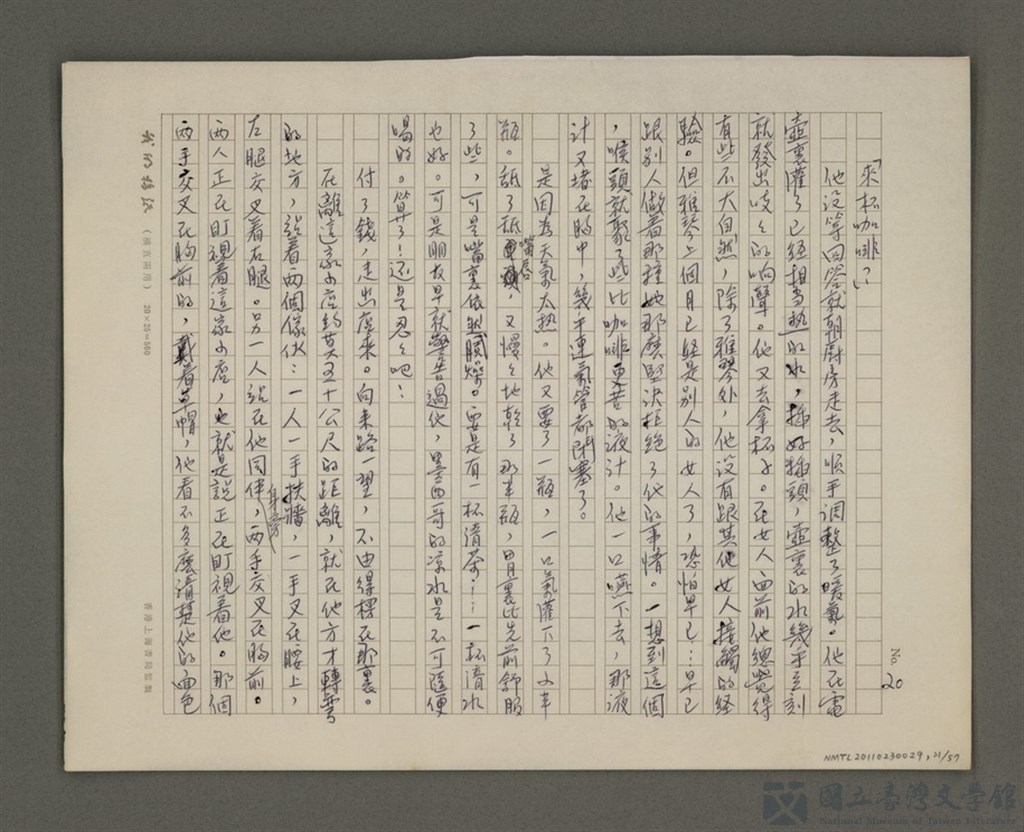 「來杯咖啡?」
他沒等回答就朝廚房走去,順手調整了暖氣。他在電
壺裏灌了已經相當熱的水,插好插頭,壺裏的水幾乎立刻
就發出吱吱的响聲。他又去拿杯子。在女人面前他總覺得
有些不大自然,除了雅琴外,他沒有跟其他女人接觸的經
驗。但雅琴上個月已經是別人的女人了,恐怕早已…早已
跟別人做着那種她那麼堅決拒絕了他的事情。一想到這個
,喉頭就聚了些比咖啡更苦的液汁。他一口嚥下去,那液
汁又堵在胸中,幾乎連氣管都閉塞了。
是因為天氣太热。他又要了一瓶,一口氣灌下了小半
瓶。舐了舐嘴唇,又慢慢地乾了那半瓶,胃裏比先前舒服
了些,可是嘴裏依然膩燥。要是有一杯清茶…一杯清水
也好。可是朋友早就警告過他,墨西哥的凉水是不可隨便
喝的。算了!還是忍忍吧…
付了錢,走出店來。向來路一望,不由得楞在那裏。
在離這家小店約莫五十公尺的距離,就在他方才轉彎
的地方,站着兩個傢伙:一人一手扶牆,一手叉在腰上,
左腿交叉着右腿。另一人站在他同伴身旁,兩手交叉在胸前。
兩人正在盯視着這家小店,也就是說正在盯視着他。那個
兩手交叉在胸前的,戴着草帽,他看不多麼清楚他的面色
No. 20
(橫直兩用) 20×25=500
香港上海書局監製
NMTL20110230029, 21/57
國立臺灣文學館
National Museum of Taiwan Literature